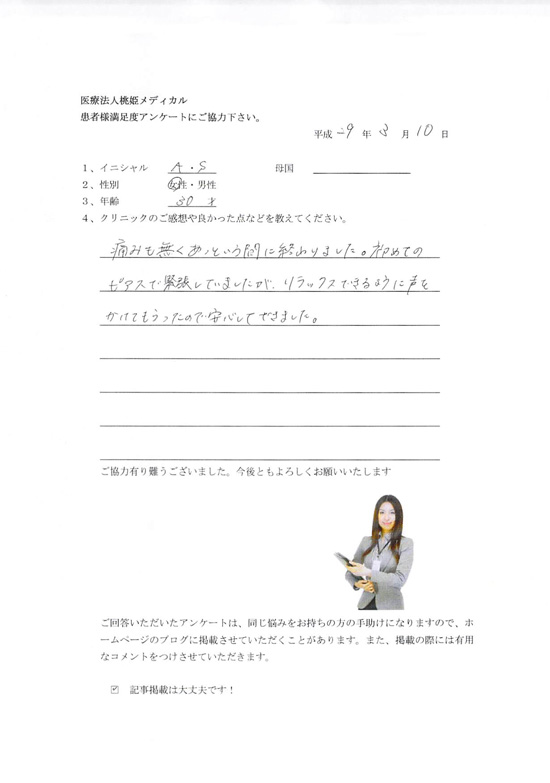 医療法人桃姫メディカル
患者様満足度アンケートにご協力下さい。
平成 29 年 3 月 10 日
1、イニシャル A・S 母国
2、性別 女性・男性
3、年齢 30 才
4、クリニックのご感想や良かった点などを教えてください。
痛みも無くあっという間に終わりました。初めての
ピアスで緊張していましたが、リラックスできるように声を
かけてもらったので安心してできました。
ご協力有り難うございました。今後ともよろしくお願いいたします
ご回答いただいたアンケートは、同じ悩みをお持ちの方の手助けになりますので、ホ
ームページのブログに掲載させていただくことがあります。また、掲載の際には有用
なコメントをつけさせていただきます。
☑ 記事掲載は大丈夫です！